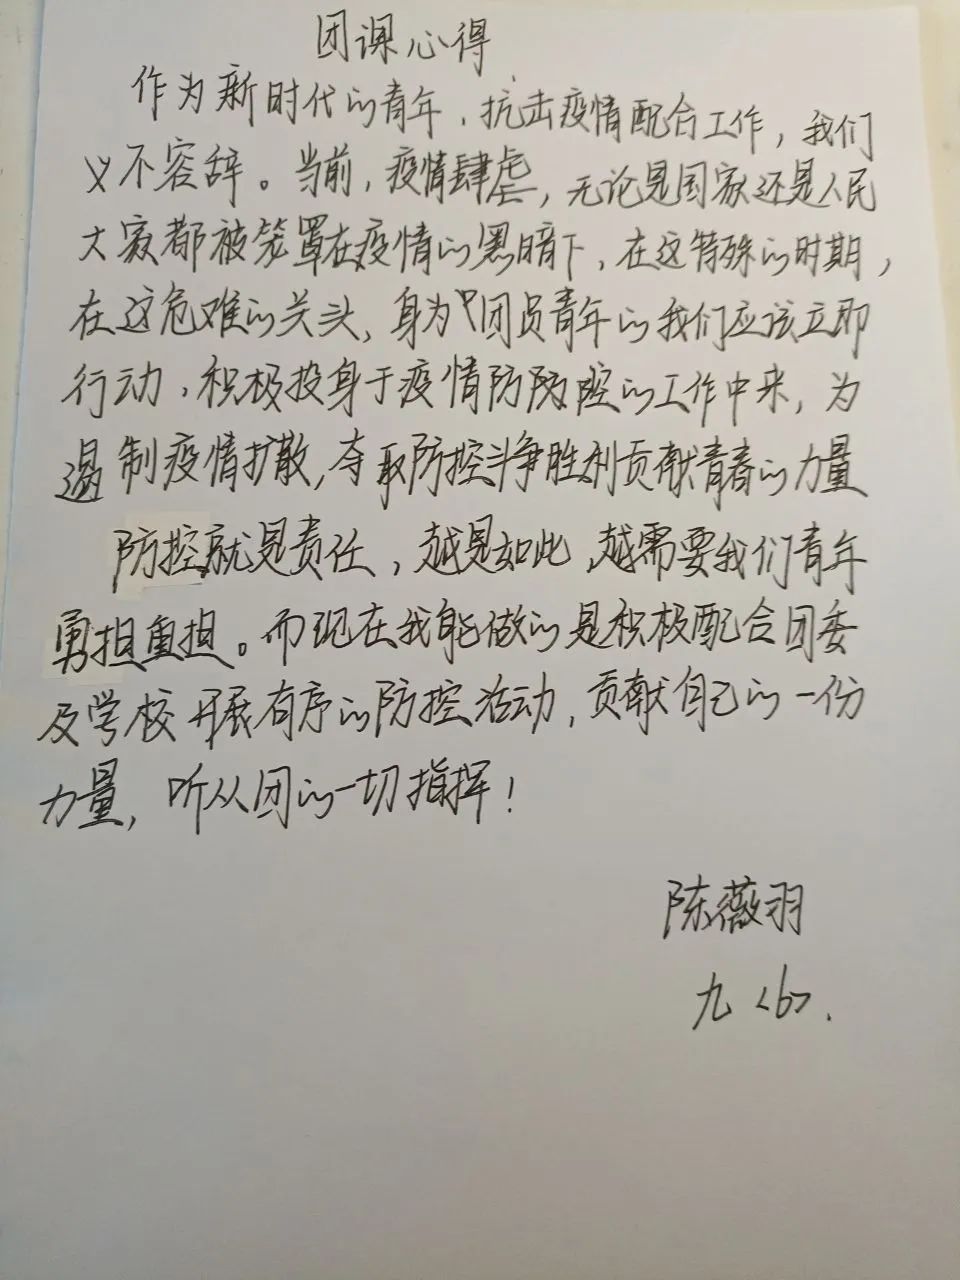 团课心得
作为新时代的青年，抗击疫情配合工作，我们
义不容辞。当前，疫情肆虐，无论是国家还是人民
大家都被笼罩在疫情的黑暗下，在这特殊的时期，
在这危难的关头，身为团员青年的我们应该立即
行动，积极投身于疫情防防控的工作中来，为
遏制疫情扩散，夺取防控斗争胜利贡献青春的力量
防控就是责任，越是如此，越需要我们青年
勇担重担。而现在我能做的是积极配合团委
及学校开展有序的防控活动，贡献自己的一份
力量，听从团的一切指挥！
陈薇羽
九<6>.